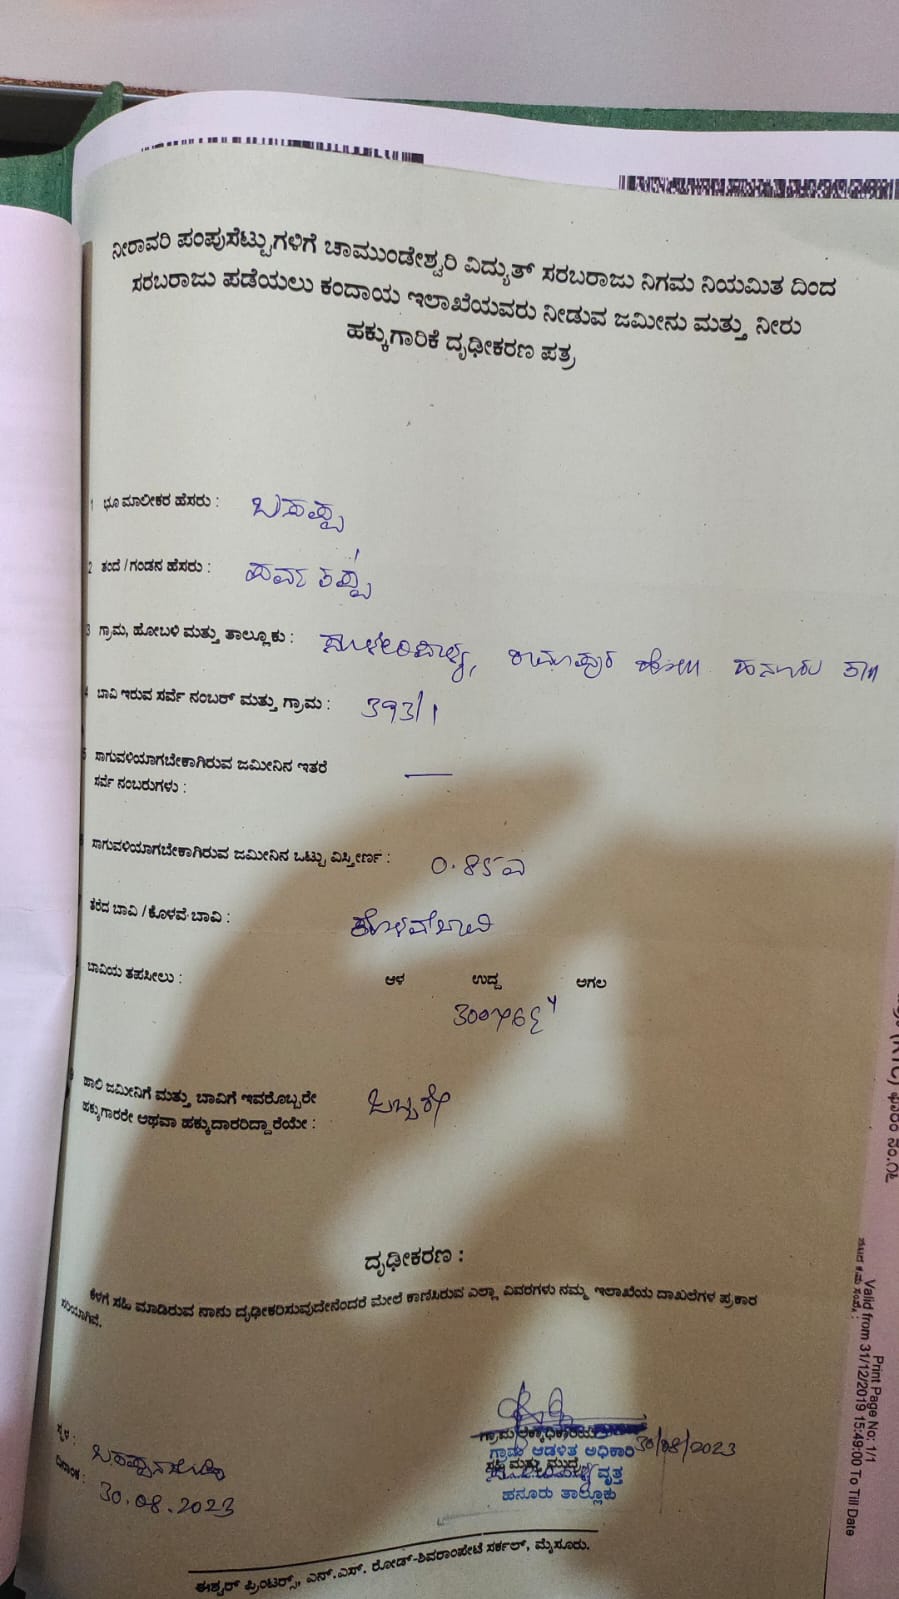 ನೀರಾವರಿ ಪಂಪುಸೆಟ್ಟುಗಳಿಗೆ ಚಾಮುಂಡೇಶ್ವರಿ ವಿದ್ಯುತ್ ಸರಬರಾಜು ನಿಗಮ ನಿಯಮಿತ ದಿಂದ
ಸರಬರಾಜು ಪಡೆಯಲು ಕಂದಾಯ ಇಲಾಖೆಯವರು ನೀಡುವ ಜಮೀನು ಮತ್ತು ನೀರು
ಹಕ್ಕುಗಾರಿಕೆ ದೃಢೀಕರಣ ಪತ್ರ
1 ಭೂ ಮಾಲೀಕರ ಹೆಸರು : ಬಸಪ್ಪ
2 ತಂದೆ / ಗಂಡನ ಹೆಸರು : ಪರ್ವತಪ್ಪ
3 ಗ್ರಾಮ, ಹೋಬಳಿ ಮತ್ತು ತಾಲ್ಲೂಕು : ರಾಮಾಪುರ ಹೋಬಳಿ ಹನೂರು ತಾ||
4 ಬಾವಿ ಇರುವ ಸರ್ವೆ ನಂಬರ್ ಮತ್ತು ಗ್ರಾಮ : 393/1
5 ಸಾಗುವಳಿಯಾಗಬೇಕಾಗಿರುವ ಜಮೀನಿನ ಇತರೆ —
ಸರ್ವೆ ನಂಬರುಗಳು :
ಸಾಗುವಳಿಯಾಗಬೇಕಾಗಿರುವ ಜಮೀನಿನ ಒಟ್ಟು ವಿಸ್ತೀರ್ಣ :
ತೆರೆದ ಬಾವಿ / ಕೊಳವೆ ಬಾವಿ : ಕೊಳವೆಬಾವಿ
ಬಾವಿಯ ತಪಸೀಲು : ಆಳ ಉದ್ದ ಅಗಲ
ಹಾಲಿ ಜಮೀನಿಗೆ ಮತ್ತು ಬಾವಿಗೆ ಇವರೊಬ್ಬರೇ ಒಬ್ಬರೇ
ಹಕ್ಕುಗಾರರೇ ಅಥವಾ ಹಕ್ಕುದಾರರಿದ್ದಾರೆಯೇ :
ದೃಢೀಕರಣ :
ಕೆಳಗೆ ಸಹಿ ಮಾಡಿರುವ ನಾನು ದೃಢೀಕರಿಸುವುದೇನೆಂದರೆ ಮೇಲೆ ಕಾಣಿಸಿರುವ ಎಲ್ಲಾ ವಿವರಗಳು ನಮ್ಮ ಇಲಾಖೆಯ ದಾಖಲೆಗಳ ಪ್ರಕಾರ
ಸರಿಯಾಗಿವೆ.
ಗ್ರಾಮ ಆಡಳಿತ ಅಧಿಕಾರಿ 30/08/2023
ಸಹಿ ಮತ್ತು ಮುದ್ರೆ
ವೃತ್ತ
ಹನೂರು ತಾಲ್ಲೂಕು
ಸ್ಥಳ :
ದಿನಾಂಕ : 30.08.2023
ಈಶ್ವರ್ ಪ್ರಿಂಟರ್ಸ್, ಎನ್.ಎಸ್. ರೋಡ್-ಶಿವರಾಂಪೇಟೆ ಸರ್ಕಲ್, ಮೈಸೂರು.
(RTC) ಫಾರಂ ನಂ.
Print Page No: 1/1
Valid from 31/12/2019 15:49:00 To Till Date